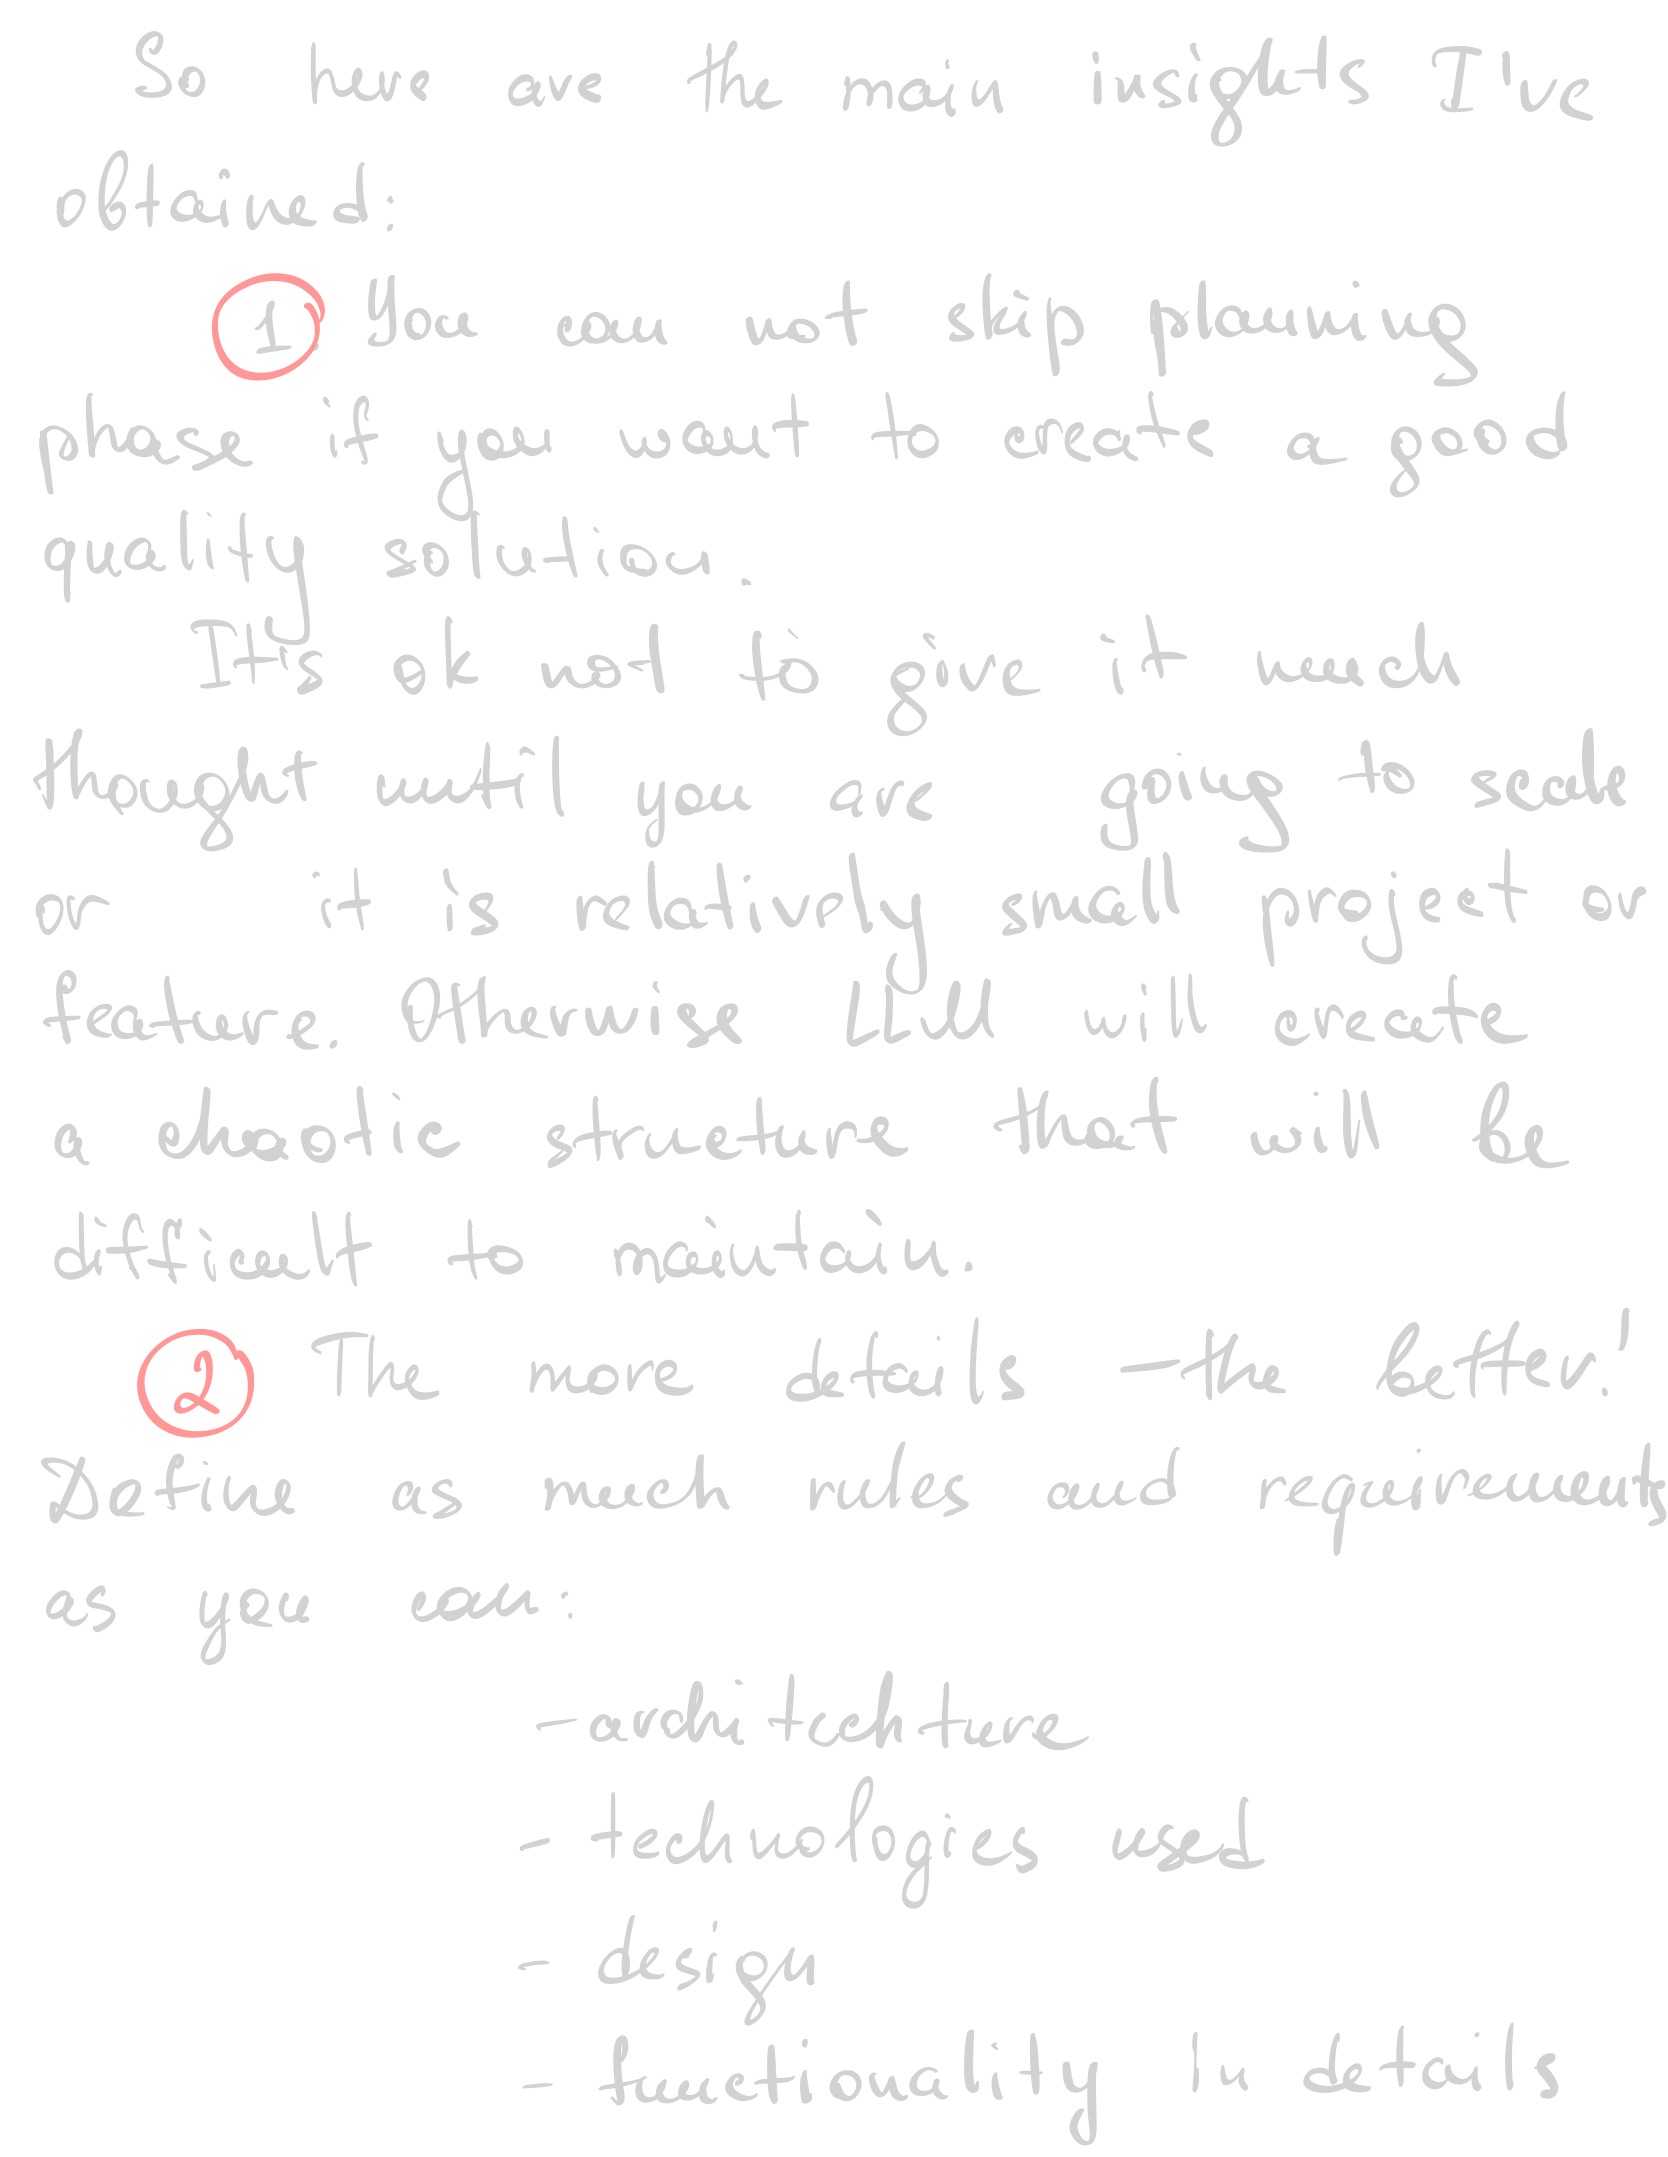 So here are the main insights I've
obtained:
1. You can not skip planning
phase if you want to create a good
quality solution.
It's ok not to give it much
thought until you are going to scale
or it is relatively small project or
feature. Otherwise LLM will create
a chaotic structure that will be
difficult to maintain.
2 The more details - the better!
Define as much rules and requirements
as you can:
- architechture
- technologies used
- design
- functionality in details